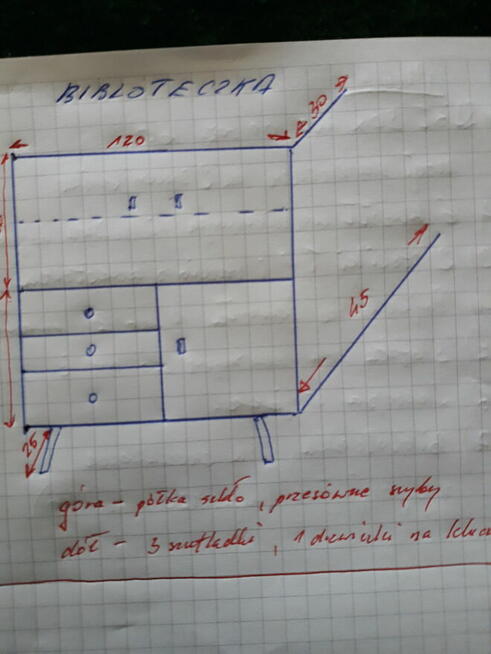 BIBLOTECZKA
120
30
45
25
góra - półka szkło, przesówne szyby
dół - 3 szufladki, 1 drzwiczki na klucz